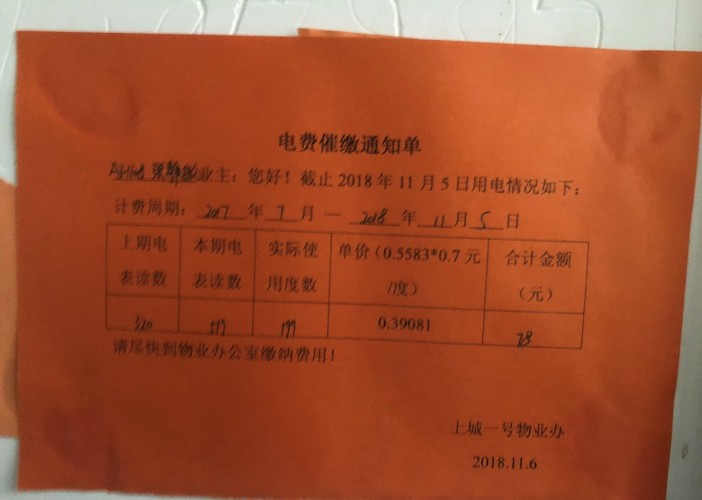 电费催缴通知单
业主：您好！截止2018年11月5日用电情况如下：
计费周期：2017年7月—2018年11月5日
上期电表读数 本期电表读数 实际使用度数 单价（0.5583*0.7元/度） 合计金额（元）
320 519 199 0.39081 78
请尽快到物业办公室缴纳费用！
上城一号物业办
2018.11.6